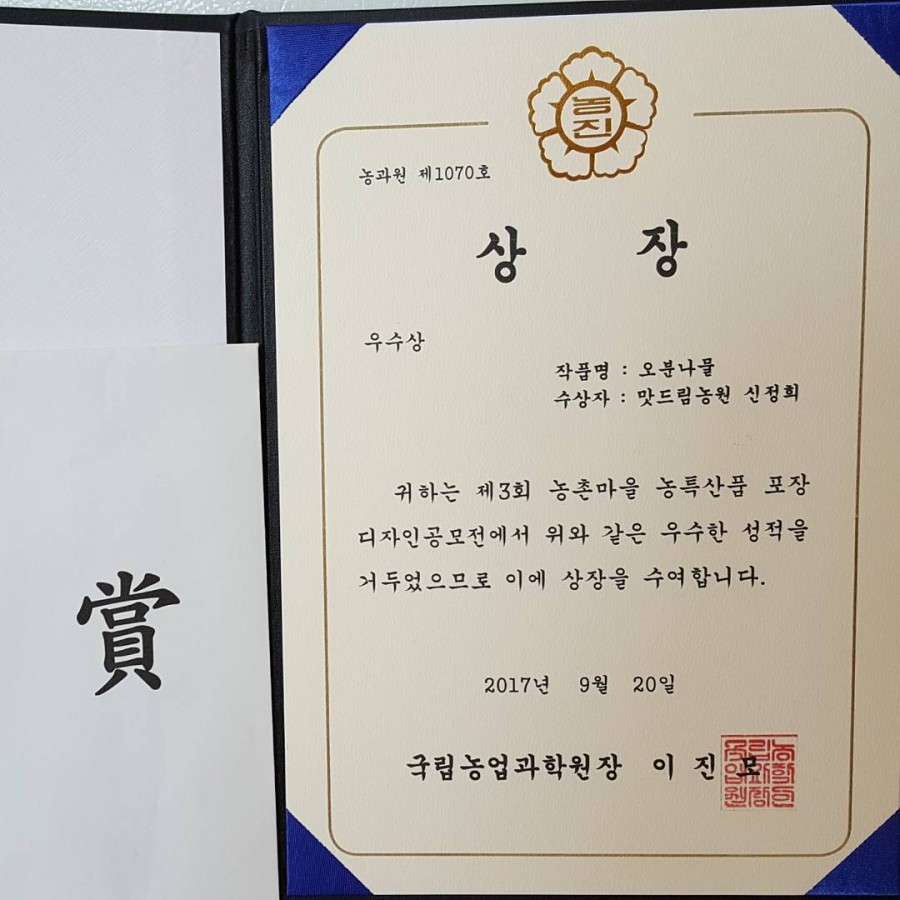 농진
농과원 제1070호
상 장
우수상
작품명 : 오분나물
수상자 : 맛드림농원 신정희
귀하는 제3회 농촌마을 농특산품 포장
디자인공모전에서 위와 같은 우수한 성적을
거두었으므로 이에 상장을 수여합니다.
2017년 9월 20일
국립농업과학원장 이 진 모
賞